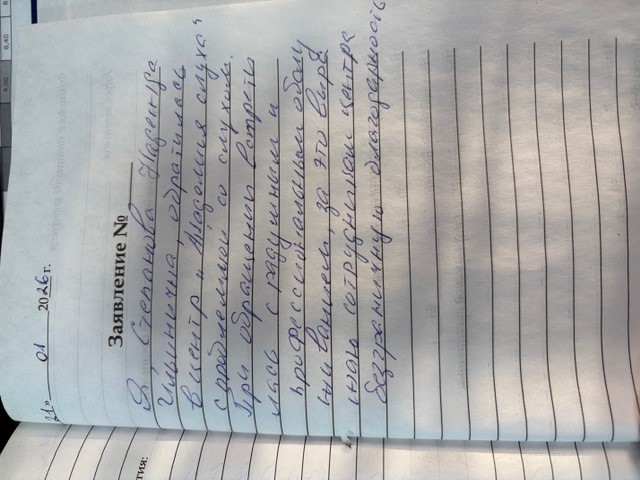 21» 01 2026 г.
Заявление №
Я, Степанова Надежда
Ильинична, обратилась
в центр „Магалия слуха"
с проблемой со слухом.
При обращении встрети
лась с радушным и
профессиональным обслу
живанием, за это выра
жаю сотрудникам центра
безграничную благодарность
тия: